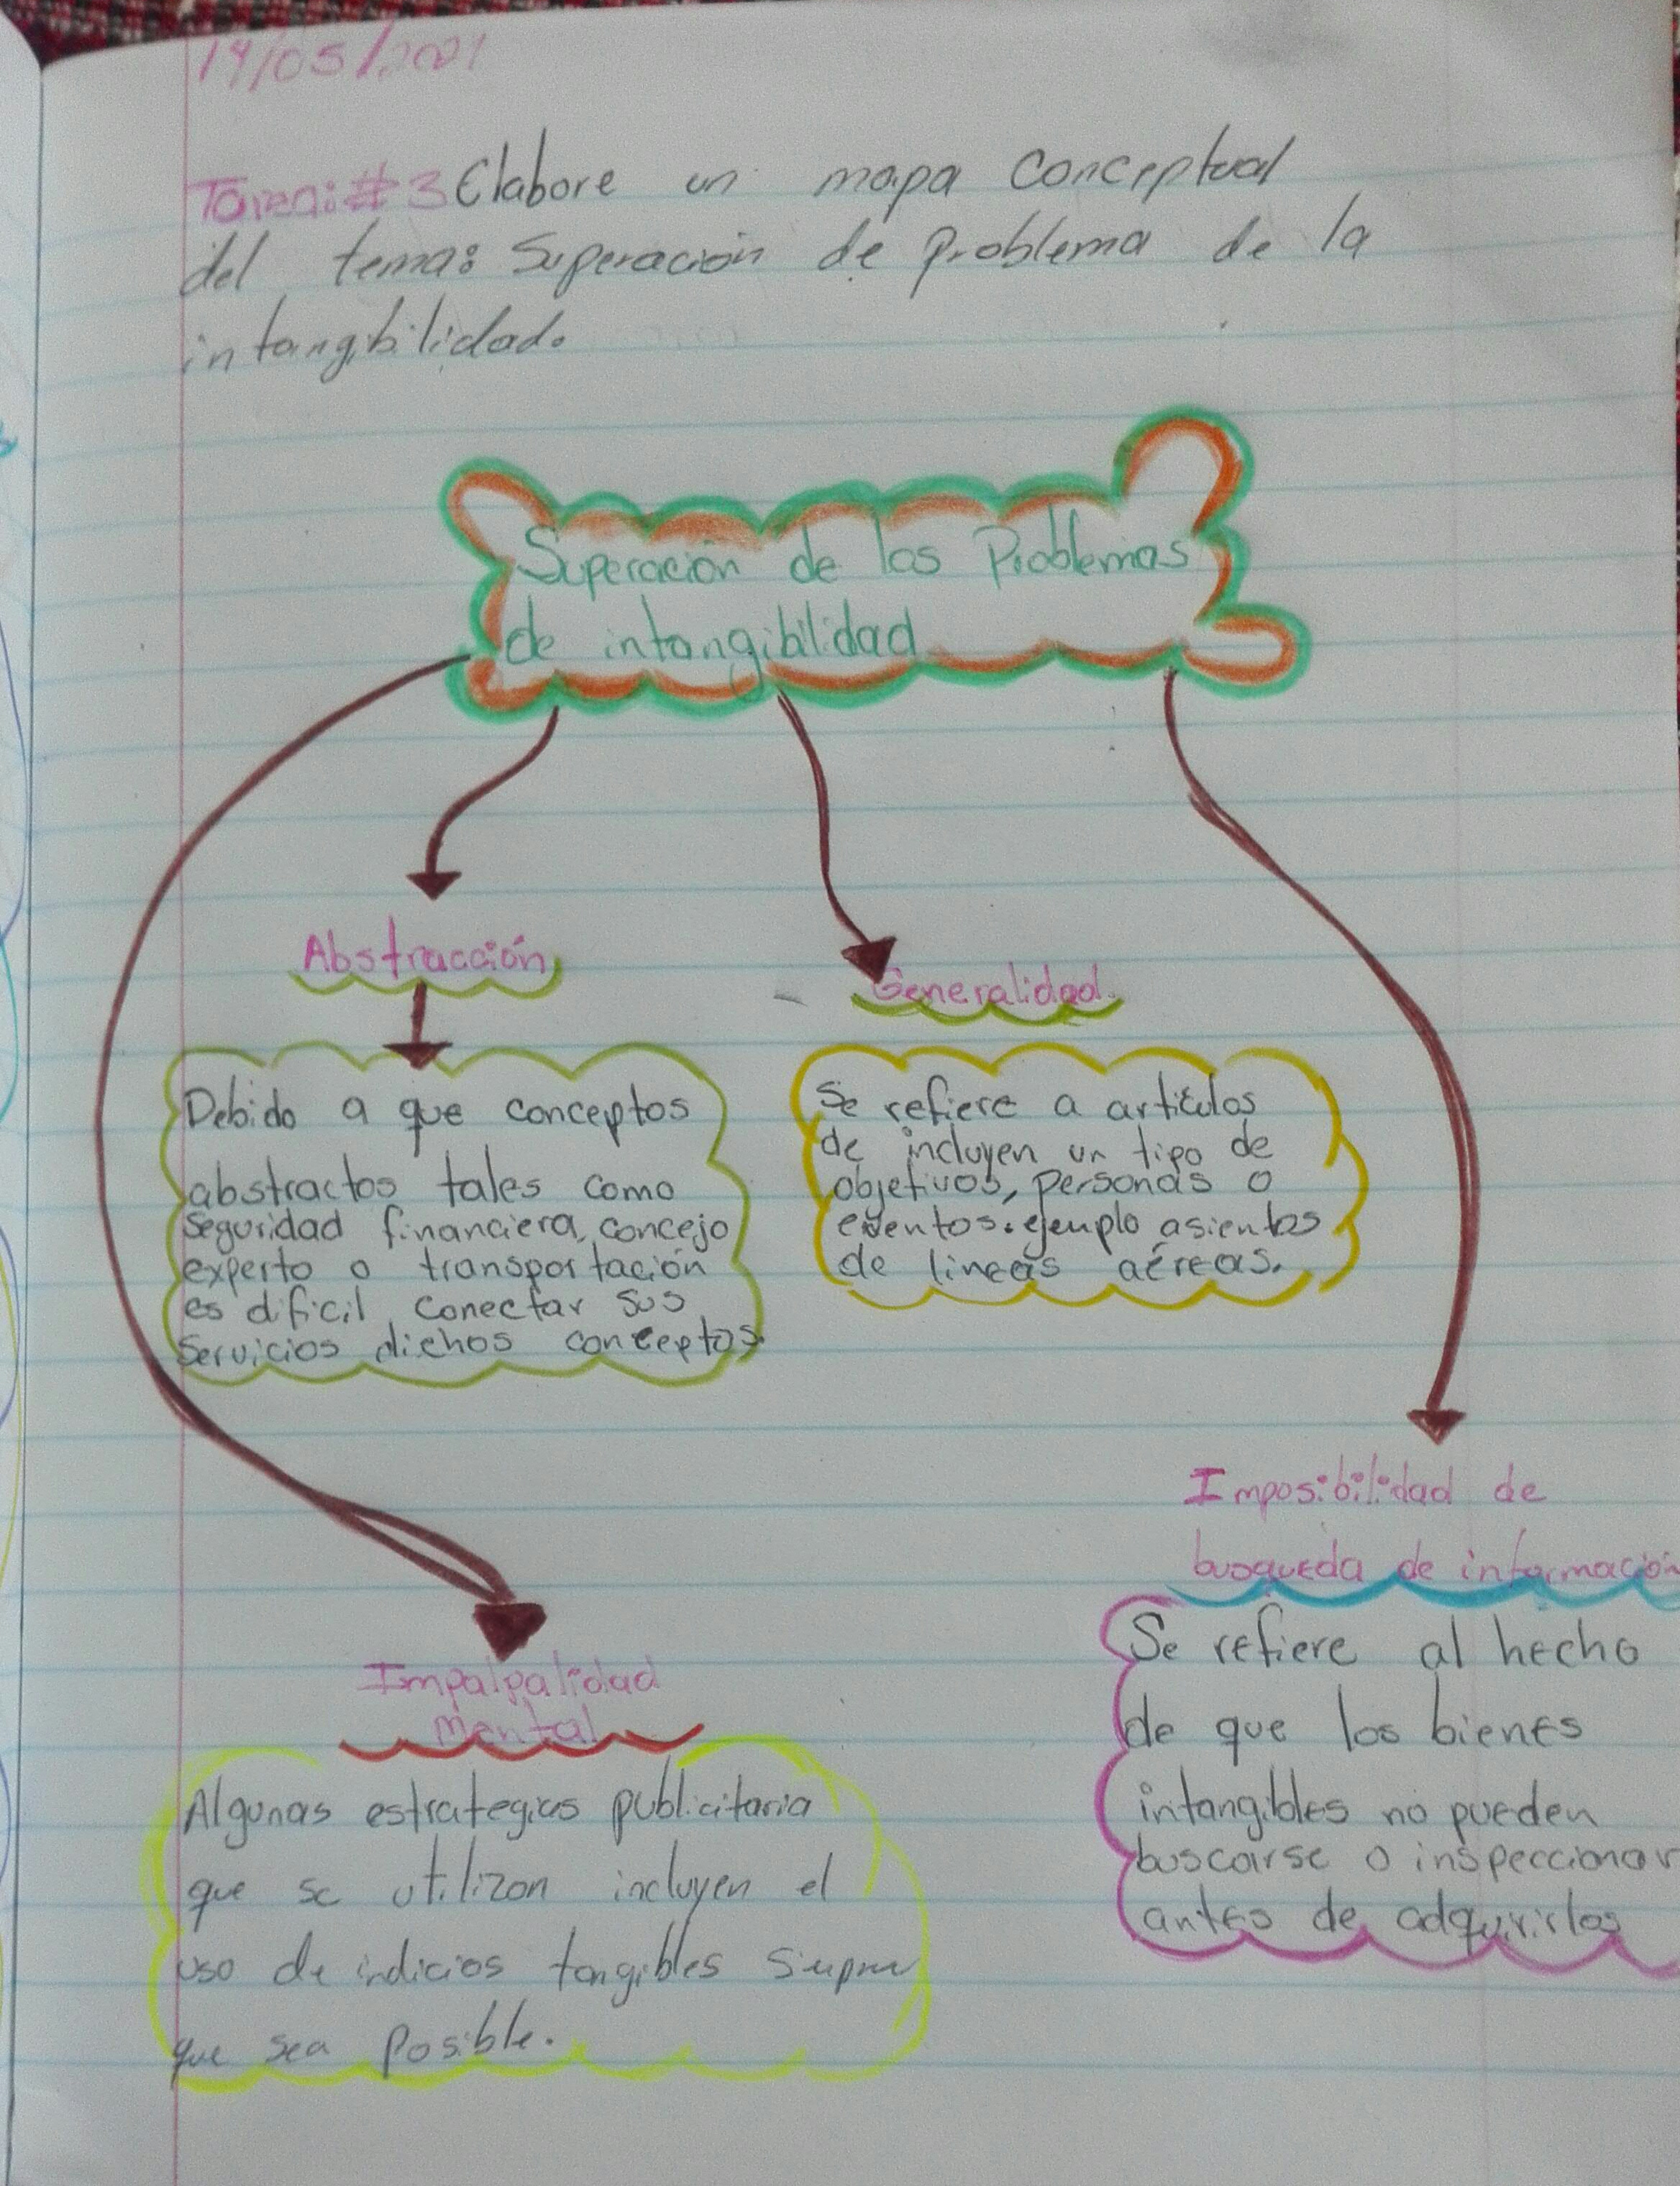 14/05/2021
Tarea:#3 Elabore un mapa conceptual
del tema: Superación de Problema de la
intangibilidad.
Superación de los Problemas
de intangibilidad
Abstracción
Generalidad.
Debido a que conceptos
abstractos tales como
seguridad financiera, concejo
experto o transportación
es dificil conectar sus
servicios dichos conceptos.
Se refiere a articulos
de incluyen un tipo de
objetivos, personas o
eventos. ejemplo asientos
de lineas aéreas.
Imposibilidad de
busqueda de información
Se refiere al hecho
de que los bienes
intangibles no pueden
buscarse o inspeccionar
antes de adquirirlos
Impalpalidad
mental
Algunas estrategias publicitaria
que se utilizan incluyen el
uso de indicios tangibles
que sea posible.